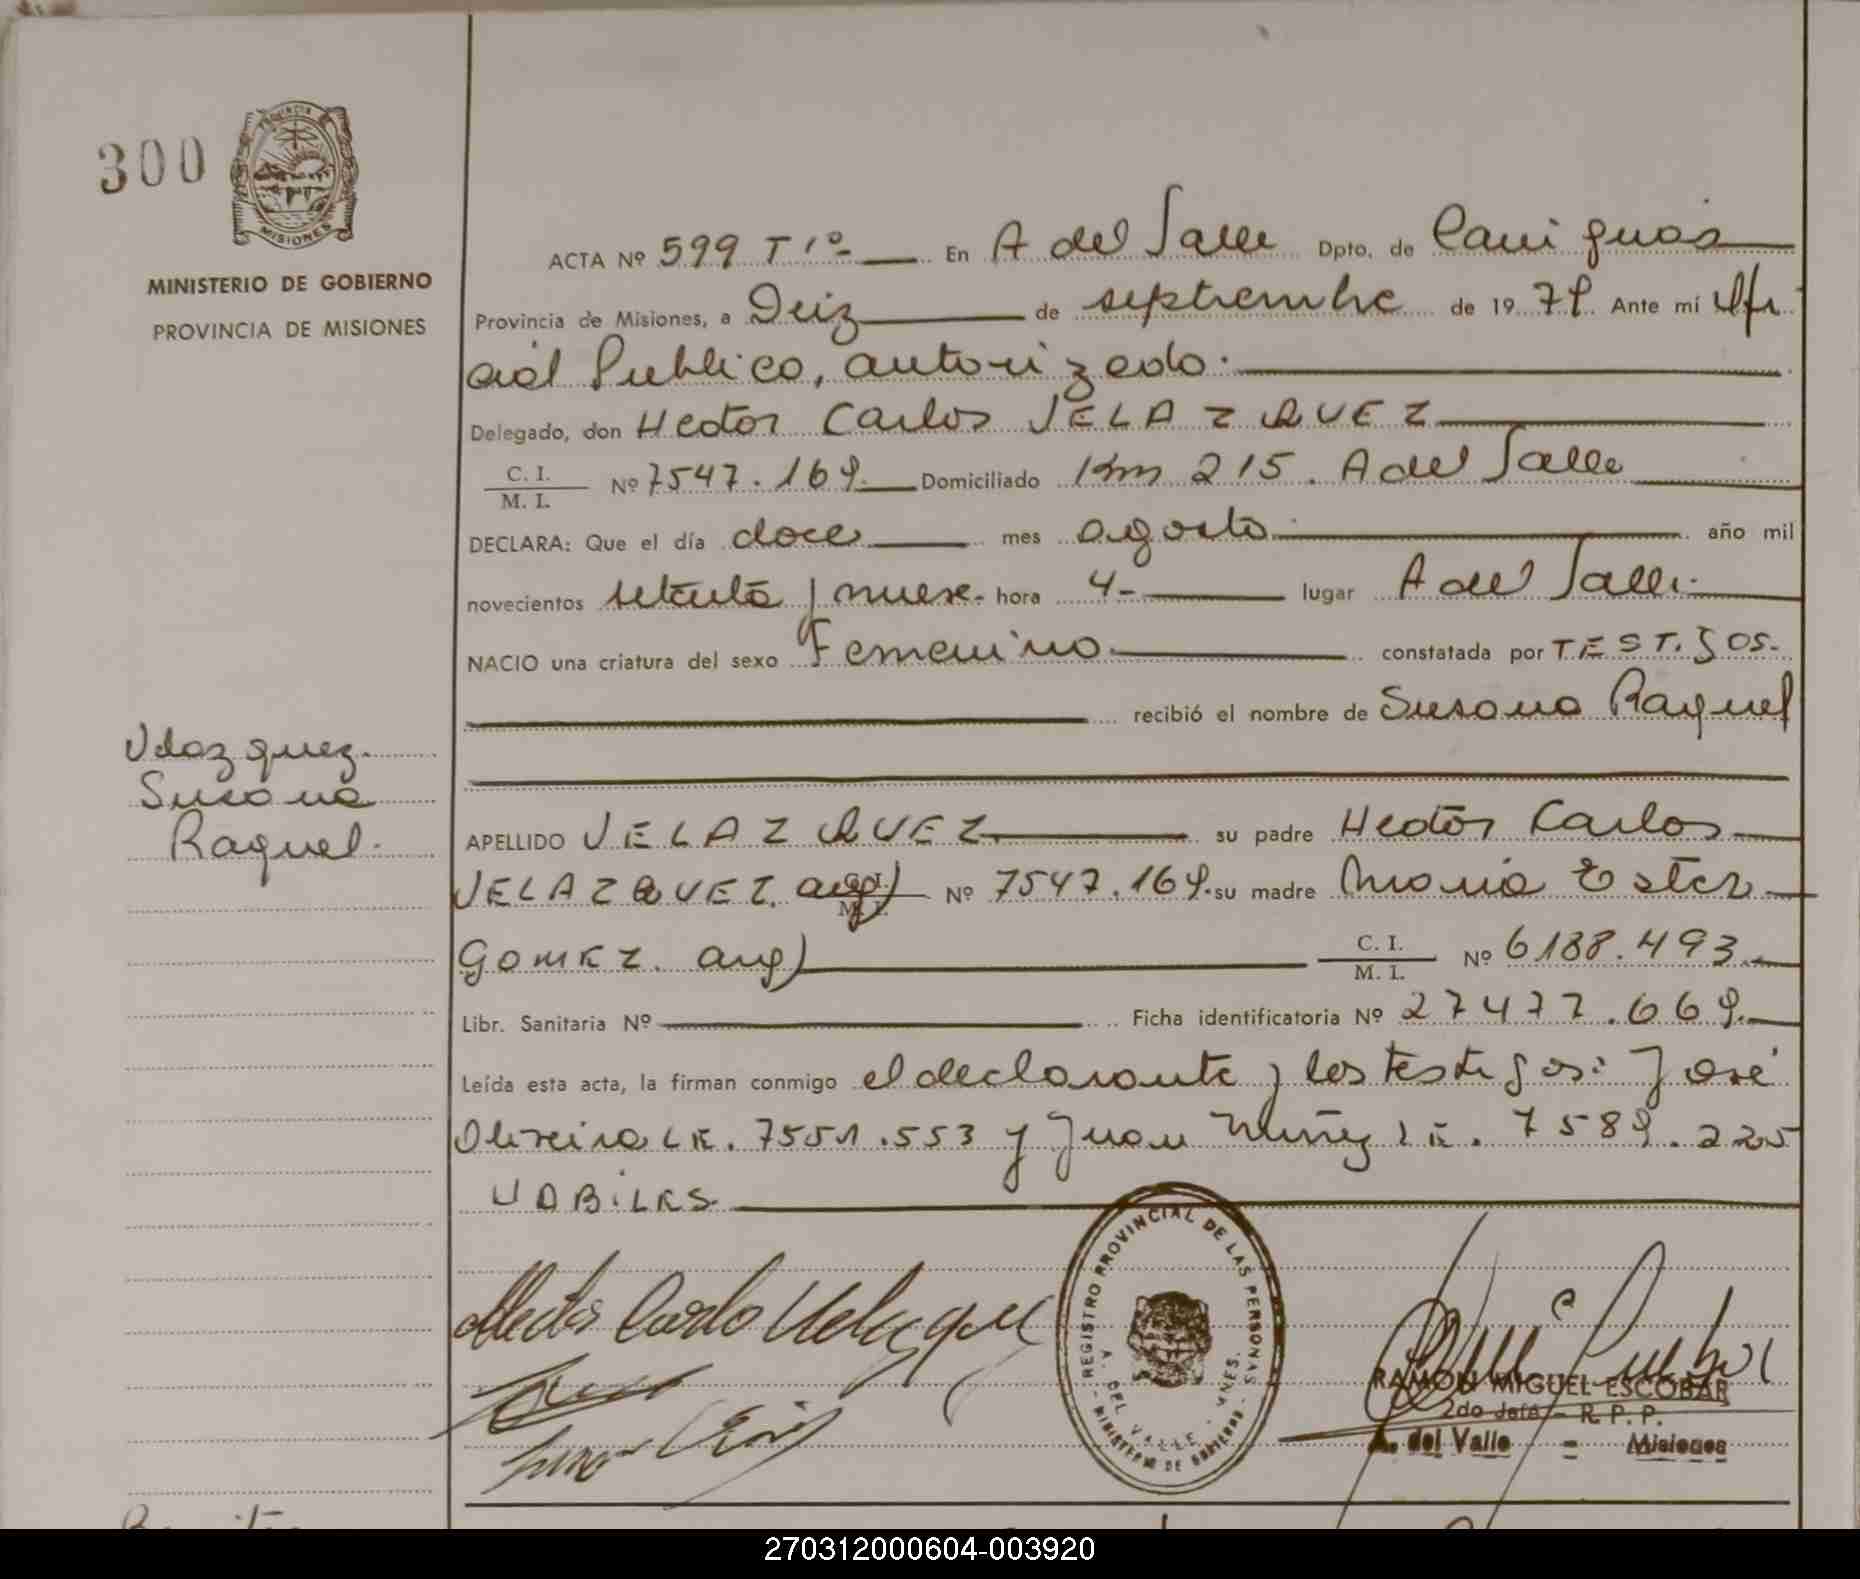 300
PROVINCIA
MISIONES
MINISTERIO DE GOBIERNO
PROVINCIA DE MISIONES
ACTA Nº 599 Tº 1º En A del Valle Dpto. de Cainguas
Provincia de Misiones, a Deiz de septiembre de 1979. Ante mí Ofi
cial Publico, autorizado.
Delegado, don Hector Carlos VELAZQUEZ
C. I.
M. I. Nº 7547.169. Domiciliado Km 215. A del Valle
DECLARA: Que el día doce mes agosto año mil
novecientos setenta y nueve. hora 4- lugar A del Valle.
NACIO una criatura del sexo Femenino. constatada por TESTIGOS.
recibió el nombre de Susana Raquel
Velazquez.
Susana
Raquel.
APELLIDO VELAZQUEZ su padre Hector Carlos
VELAZQUEZ. arg) C. I. M. I. Nº 7547.169. su madre Maria Ester
GOMEZ. arg) C. I. M. I. Nº 6188.493.
Libr. Sanitaria Nº Ficha identificatoria Nº 27477.669.
Leída esta acta, la firman conmigo el declarante y los testigos: José
Oliveira LE. 7551.553 y Juan Muñiz LE. 7589.225
HABILES.
Hector Carlo Velazquez
REGISTRO PROVINCIAL DE LAS PERSONAS
A. DEL VALLE - MNES.
MINISTERIO DE GOBIERNO
RAMON MIGUEL ESCOBAR
2do Jefe - R. P. P.
A. del Valle = Misiones
270312000604-003920